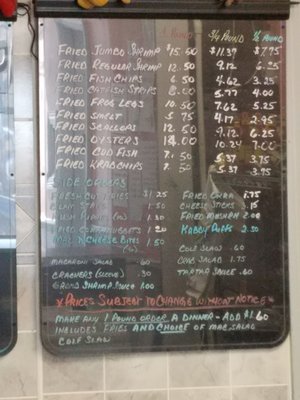 1 POUND 3/4 POUND 1/2 POUND
FRIED JUMBO SHRIMP $15.00 $11.37 $7.75
FRIED REGULAR SHRIMP 12.50 9.12 6.25
FRIED FISH CHIPS 6.50 4.62 3.25
FRIED CATFISH STRIPS 8.00 5.77 4.00
FRIED FROG LEGS 10.50 7.62 5.25
FRIED SMELT 5.75 4.17 2.95
FRIED SCALLOPS 12.50 9.12 6.25
FRIED OYSTERS 14.00 10.24 7.00
FRIED COD FISH 7.50 5.37 3.75
FRIED KRABCHIPS 7.50 5.37 3.75
SIDE ORDERS
FRESH CUT FRIES $1.25 FRIED OKRA 1.75
1.50 CHEESE STICKS
HUSH PUPPY 1.50 FRIED MUSHRM 2.00
FRIED CORN NUGGETS 1.20 KRABBY PUFFS 2.50
MAC N CHEESE BITES 1.50
COLE SLAW .60
MACARONI SALAD .60 SALAD 1.75
CRACKERS (SLEEVE) .30 TARTAR SAUCE .60
SHRIMP SAUCE 1.00
* PRICES SUBJECT TO CHANGE WITHOUT NOTICE *
MAKE ANY 1 POUND ORDER A DINNER - ADD $1.60
INCLUDES FRIES AND CHOICE OF MAC SALAD
COLE SLAW